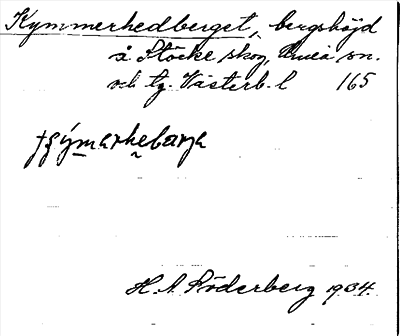 Kymmerhedberget, bergshöjd
å Stöcke skog, Umeå sn.
och tg. Västerb. l 165
H. A. Röderberg 1934.